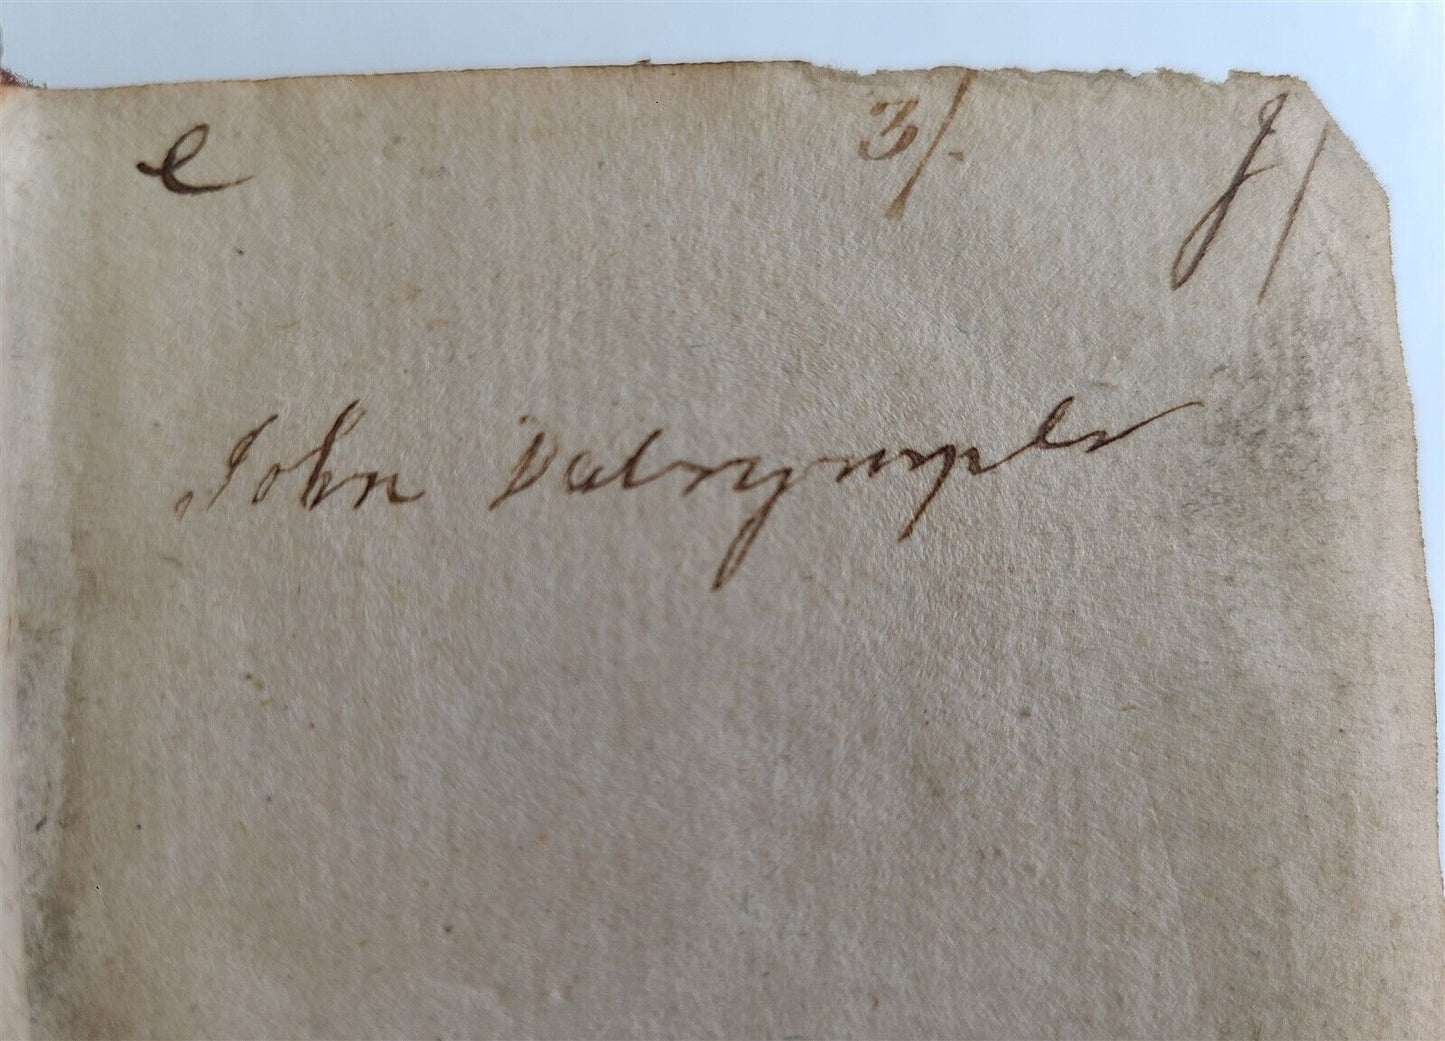 e 3/.
John Dalrymple